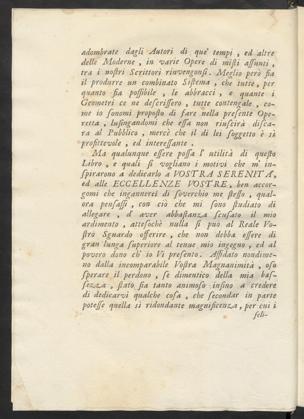 adombrate dagli Autori di que' tempi, ed altre
delle Moderne, in varie Opere di misti assunti,
tra i nostri Scrittori rinvengonsi. Meglio però sia
il produrre un combinato Sistema, che tutte, per
quanto sia possibile, le abbracci, e quante i
Geometri ce ne descrissero, tutte contengale, co-
me io sonomi proposto di fare nella presente Ope-
retta, lusingandomi che essa non riuscirà disca-
ra al Pubblico, mercè che il di lei soggetto è sì
profittevole, ed interessante.
Ma qualunque essere possa l' utilità di questo
Libro, e quali si vogliano i motivi che m' in-
spirarono a dedicarlo a VOSTRA SERENITA',
ed alle ECCELLENZE VOSTRE, ben accor-
gomi che ingannerei di soverchio me stesso, qual-
ora pensassi, con ciò che mi sono studiato di
allegare, d' aver abbastanza scusato il mio
ardimento, attesochè nulla si può al Reale Vo-
stro Sguardo offerire, che non debba essere di
gran lunga superiore al tenue mio ingegno, ed al
povero dono ch' io Vi presento. Affidato nondime-
no dalla incomparabile Vostra Magnanimità, oso
sperare il perdono, se dimentico della mia bas-
sezza, stato sia tanto animoso insino a credere
di dedicarvi qualche cosa, che secondar in parte
potesse quella sì ridondante magnificenza, per cui i
seli-